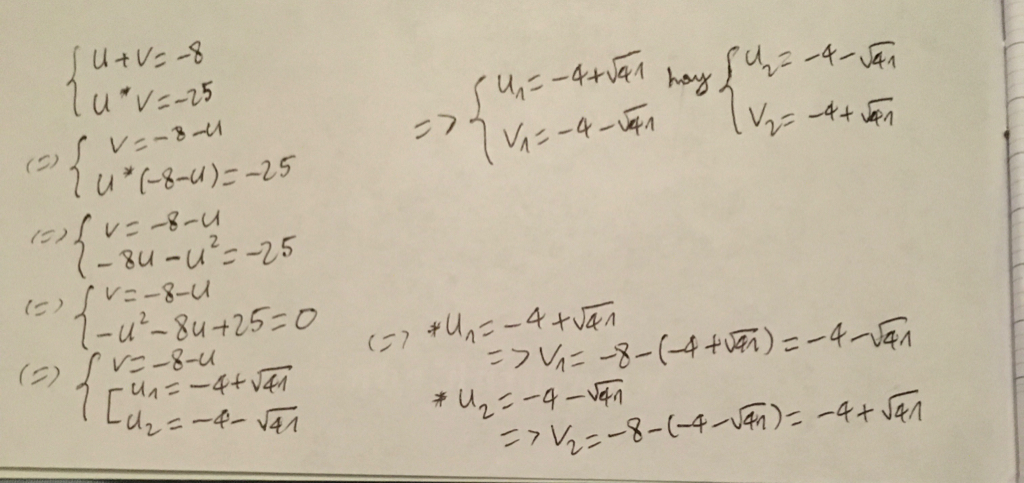 { U + V = -8
U * V = -25
(=) { V = -8 - U
U * (-8 - U) = -25
(=) { V = -8 - U
-8U - U² = -25
(=) { V = -8 - U
-U² - 8U + 25 = 0
(=) { V = -8 - U
[ U₁ = -4 + √41
U₂ = -4 - √41
(=) * U₁ = -4 + √41
=> V₁ = -8 - (-4 + √41) = -4 - √41
* U₂ = -4 - √41
=> V₂ = -8 - (-4 - √41) = -4 + √41
=> { U₁ = -4 + √41 hay { U₂ = -4 - √41
V₁ = -4 - √41 V₂ = -4 + √41